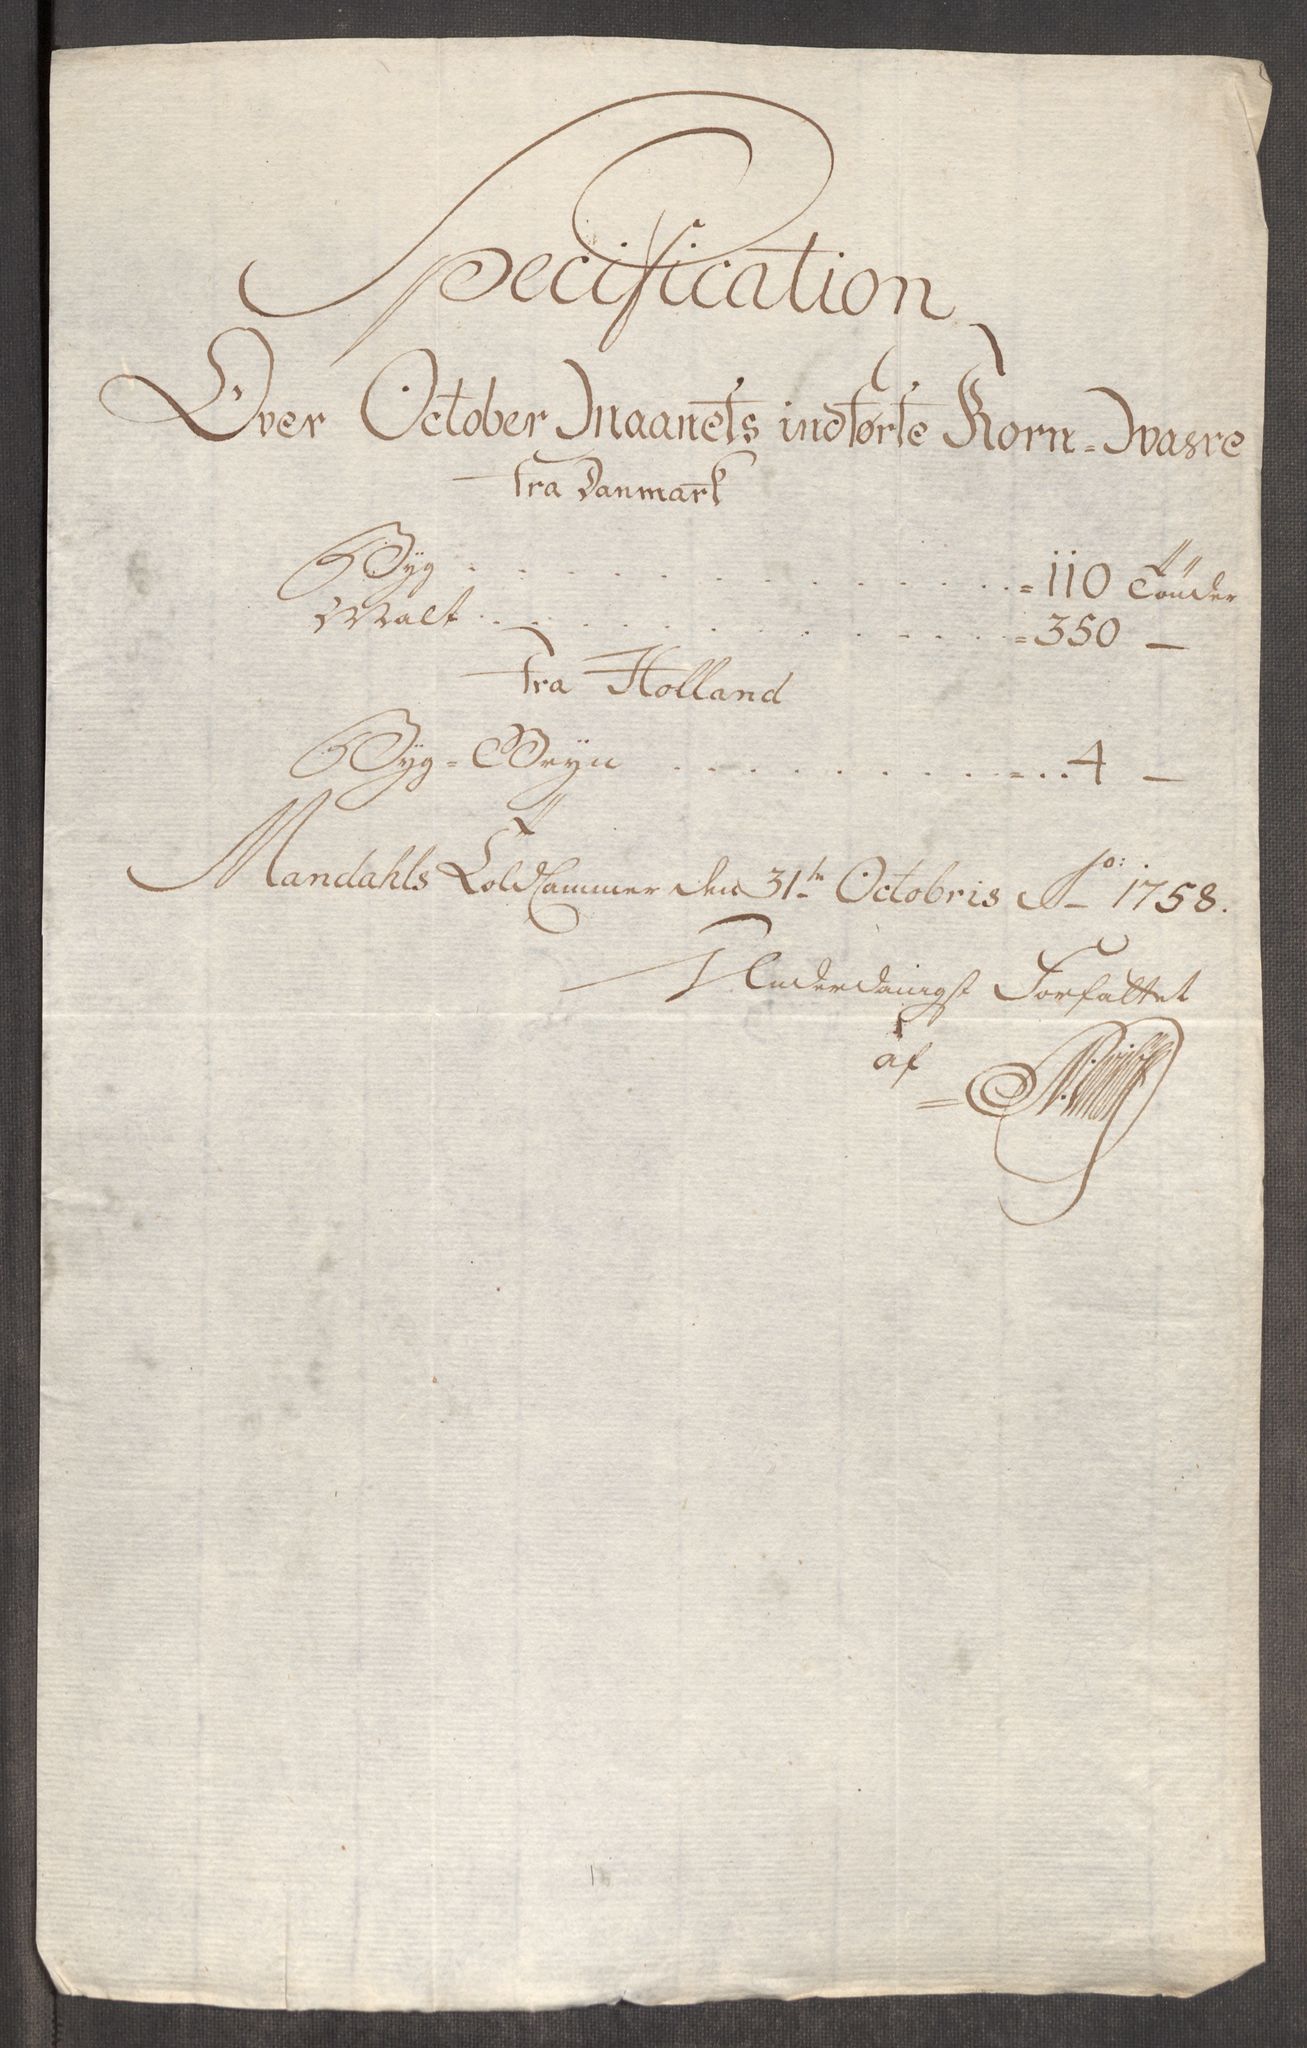 Specification
Over October Maanets indførte Korn=Wahre
fra Danmark
Byg . . . . . . . . . . . . = 110 Tönder
Malt . . . . . . . . . . . . = 350 —
fra Holland
Byg=Gryn . . . . . . . . . = . . 4 —
Mandahls Told Cammer den 31te Octobris Ao: 1758.
Underdanigst Forfattet
af